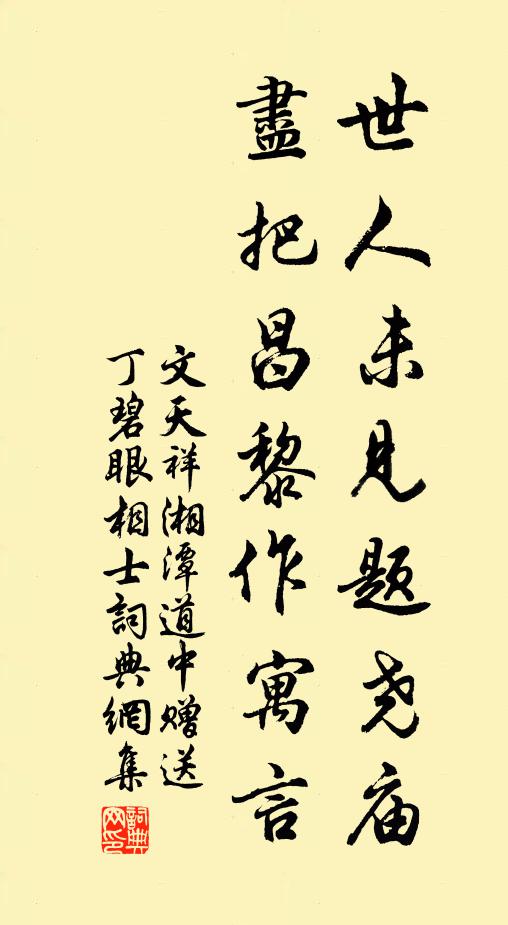 世人未见题尧庙
盡把昌黎作寓言
文天祥湘潭道中赠送
丁碧眼相士詞典網集
詞典
网印